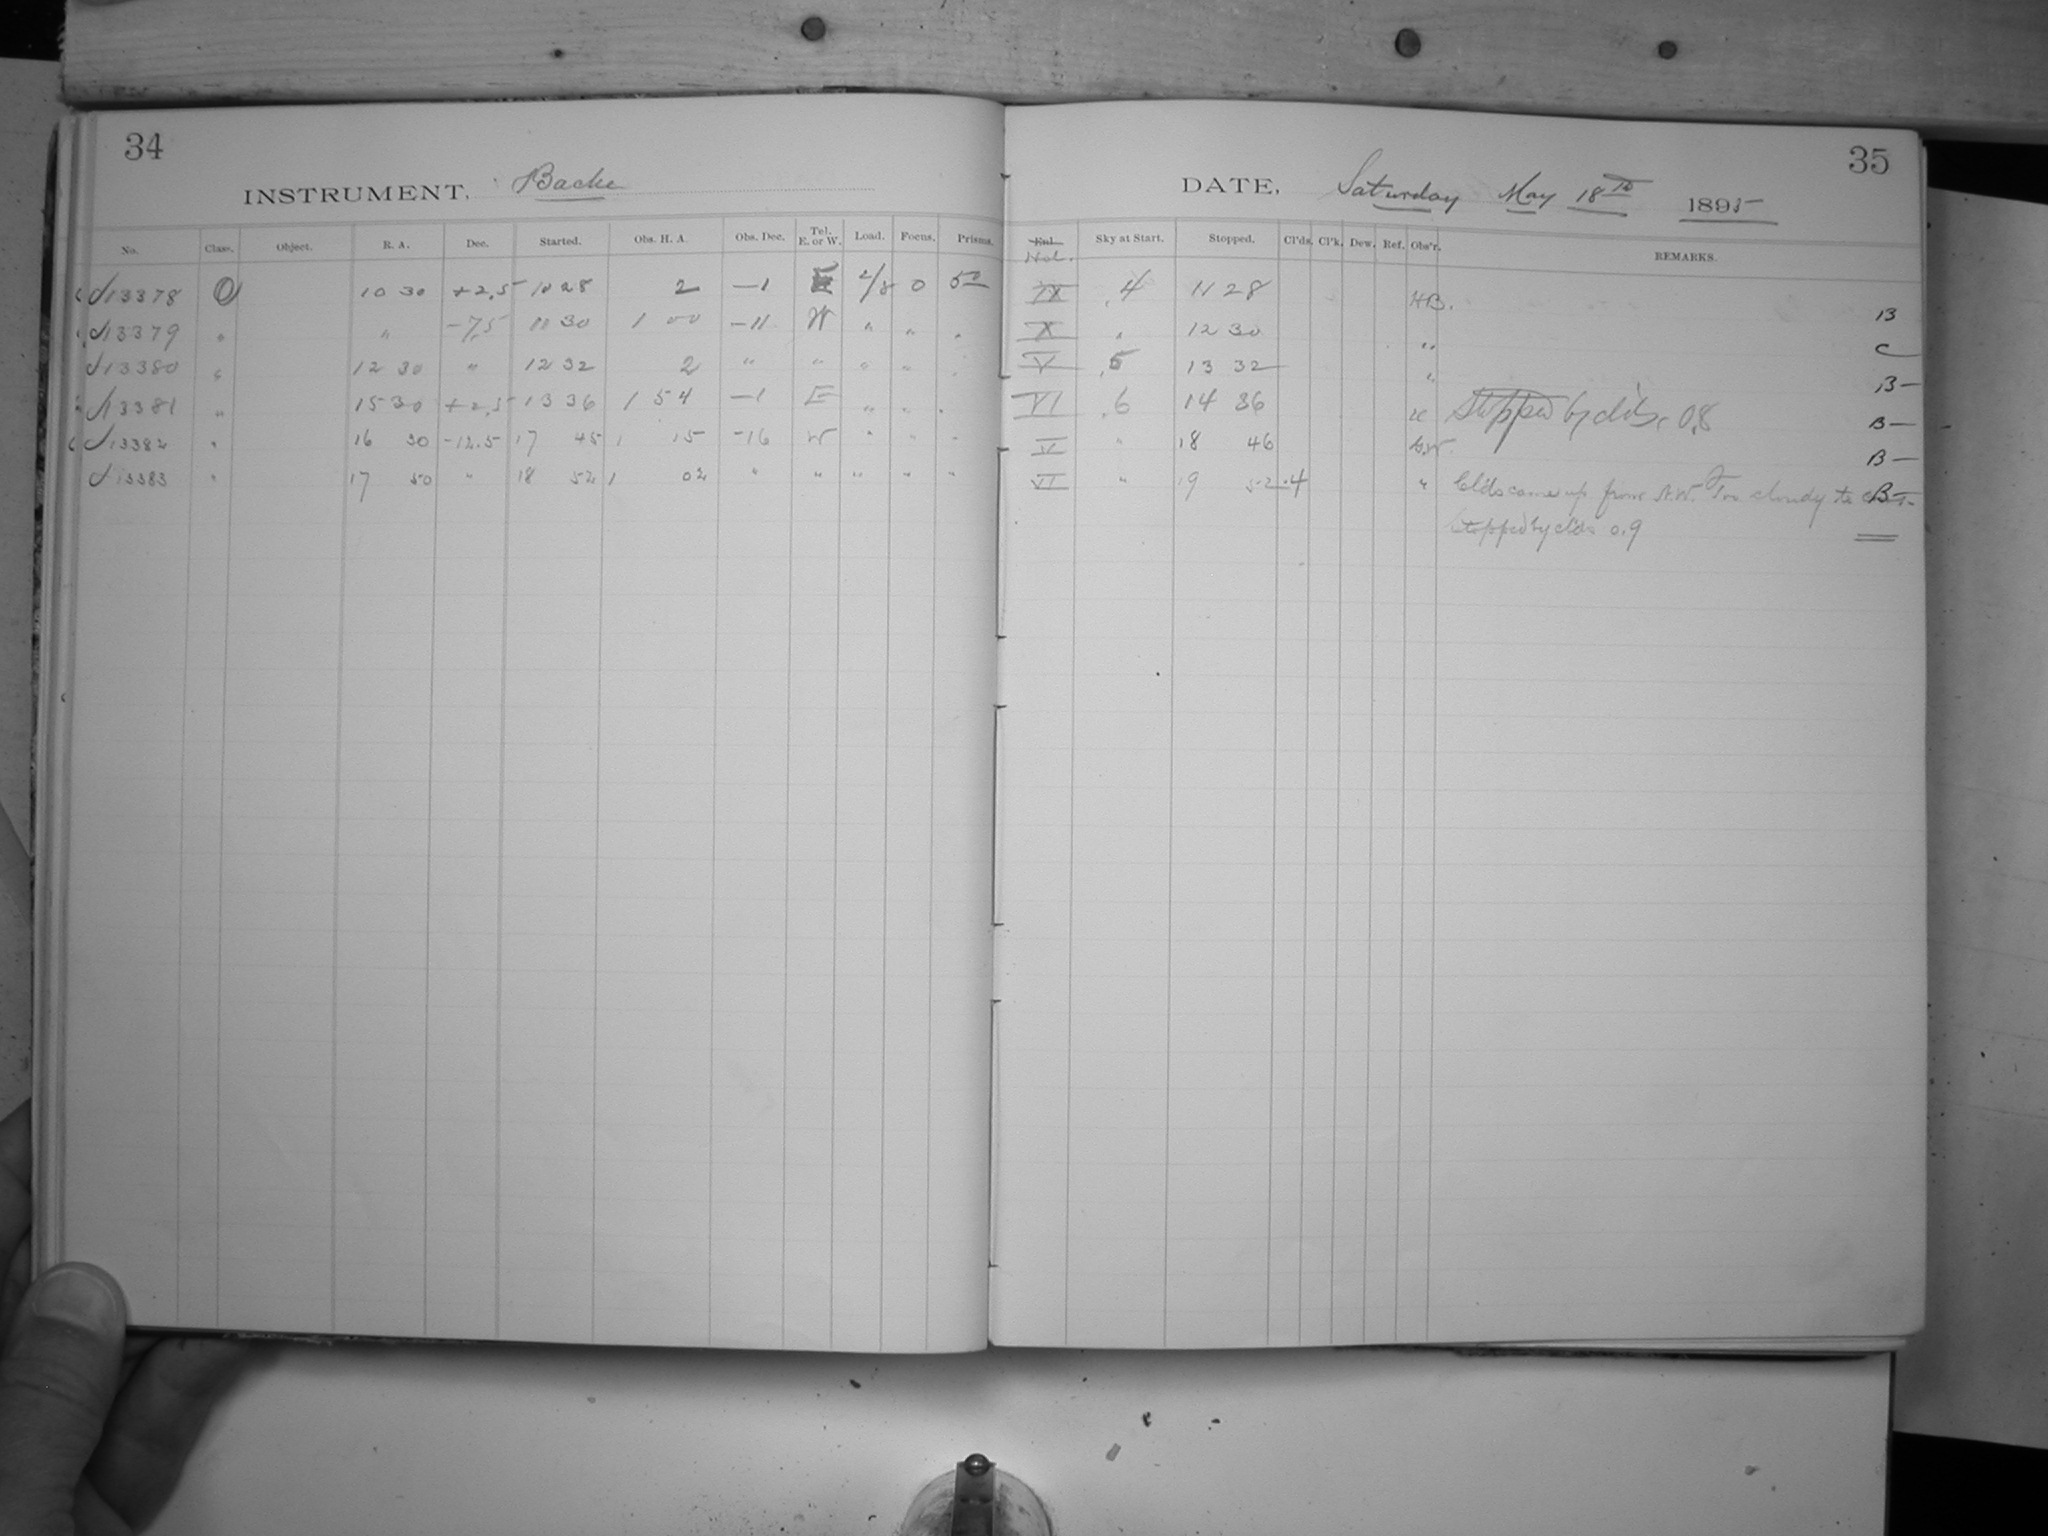 34
INSTRUMENT, Bache
No. Class. Object. R. A. Dec. Started. Obs. H. A. Obs. Dec. Tel. E. or W. Load. Focus. Prisms.
13378 O 10 30 +2.5 10 28 2 -1 E 0
13379 " " -7.5 11 30 1 00 -11 W " " "
13380 " 12 30 " 12 32 2 " " " " "
13381 " 15 30 +2.5 13 36 1 54 -1 E " " "
13382 " 16 30 -12.5 17 45 1 15 -16 W " " "
13383 " 17 50 " 18 52 1 02 " " " " "
35
DATE, Saturday May 18th 1895
Hol. Sky at Start. Stopped. Cl'ds. Cl'k. Dew. Ref. Obs'r. REMARKS.
IX .4 11 28 HB. B
X " 12 30 " C
V .5 13 32 " B-
VI .6 14 36 " Stopped by clds. 0.8 B-
V " 18 46 B-
VI " 19 52 .4 " Clds came up from N.W. Too cloudy to B-
Stopped by clds 0.9